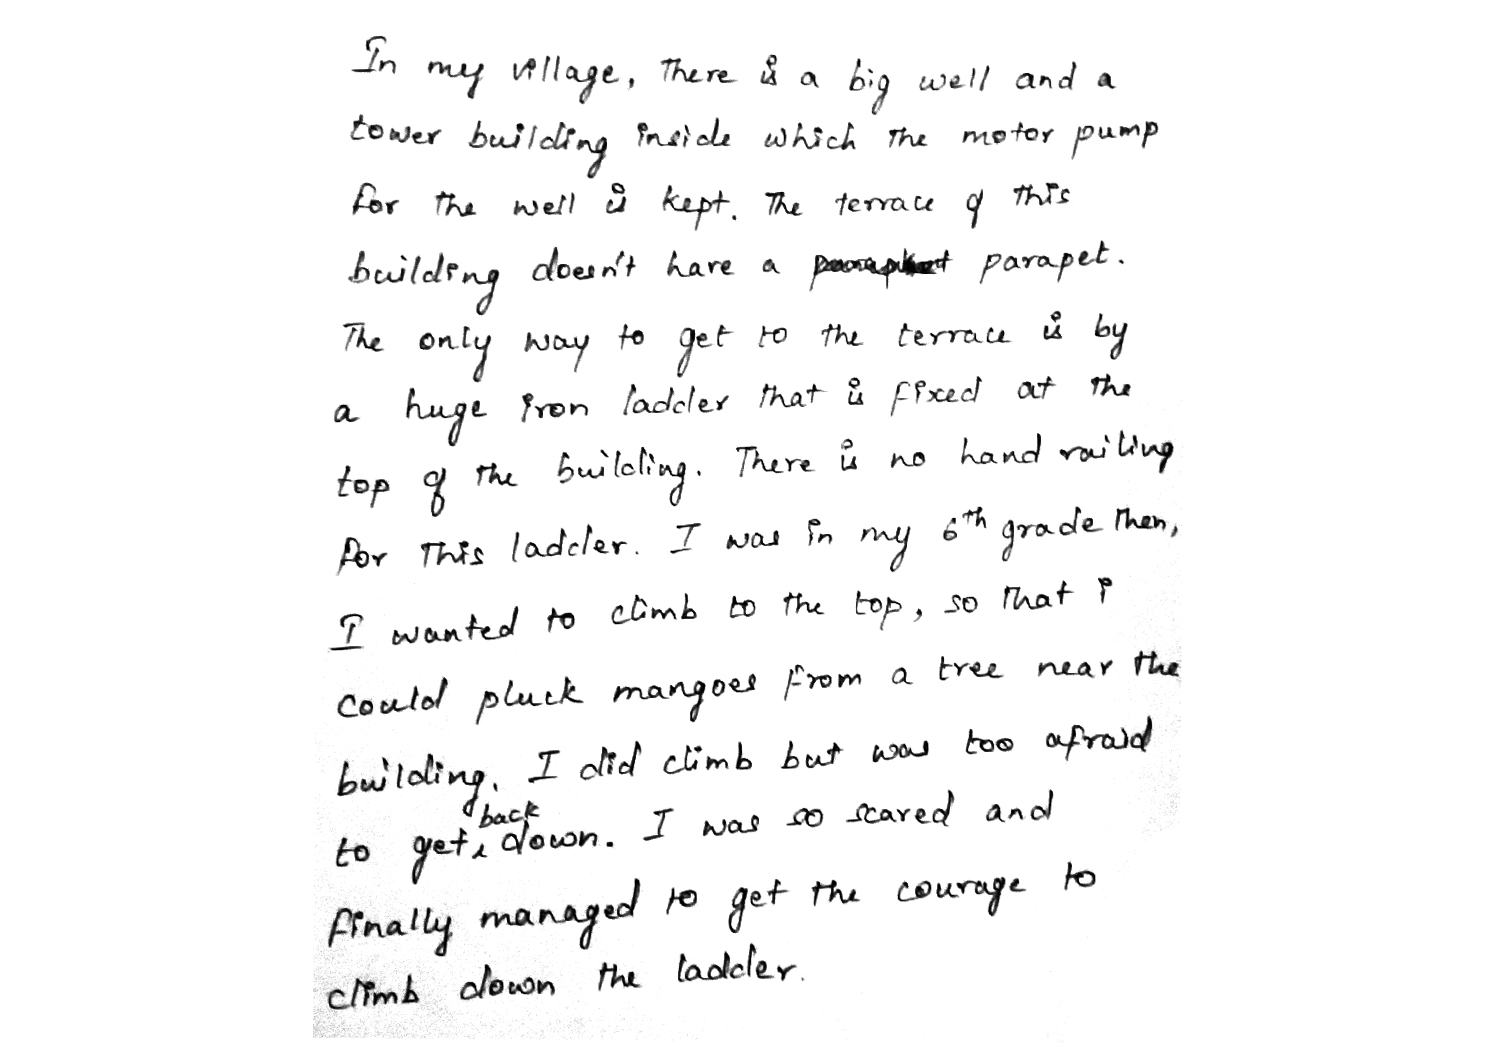 In my village, There is a big well and a
tower building inside which the motor pump
for the well is kept. The terrace of this
building doesn't have a parapet.
The only way to get to the terrace is by
a huge iron ladder that is fixed at the
top of the building. There is no hand railing
for this ladder. I was in my 6th grade then,
I wanted to climb to the top, so that i
could pluck mangoes from a tree near the
building. I did climb but was too afraid
to get back down. I was so scared and
finally managed to get the courage to
climb down the ladder.